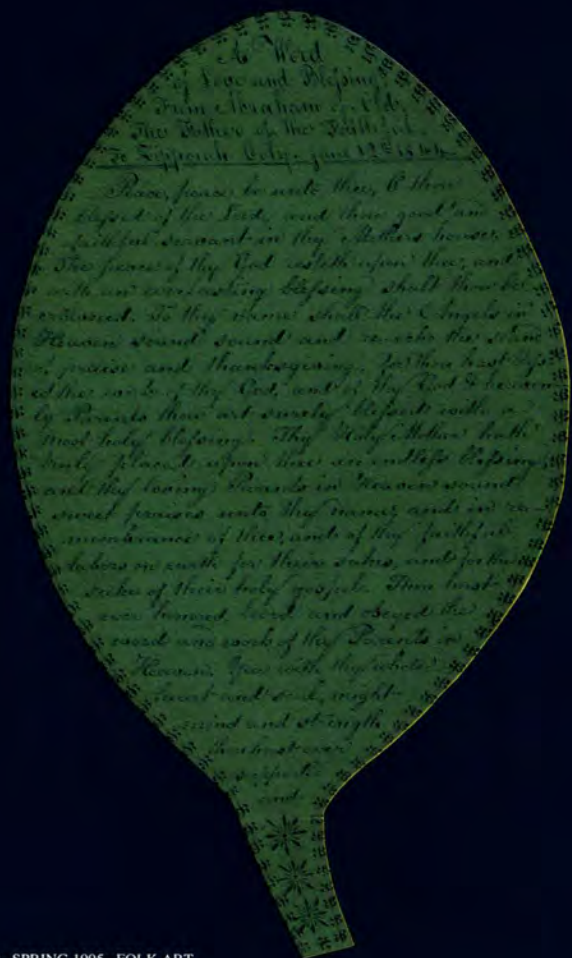 A Word
of Love and Blessing
From Abraham of Old,
The Father of the Faithful.
To Zipporah Cory. June 12th 1844
Peace, peace be unto thee, O thou
blessed of the Lord, and thou good and
faithful servant in thy Mothers house.
The peace of thy God resteth upon thee, and
with an everlasting blessing shalt thou be
crowned. To thy name shall the Angels in
Heaven sound sound and re-echo the
of praise and thanksgiving, for thou hast
ed the work of thy God, and of thy God & heaven
ly Parents thou art surely blessed with a
most holy blessing. Thy Holy Mother hath
truly placed upon thee an endless blessing,
and thy loving Parents in Heaven sound
sweet praises unto thy name, and in re-
membrance of thee, and of thy faithful
labors on earth for their sakes, and for the
sakes of their holy gospel. Thou hast
ever honored, loved and obeyed the
word and work of thy Parents in
Heaven. Yea with thy whole
heart and soul, might
mind and strength
thou hast ever
supported
and
SPRING 1995 FOLK ART